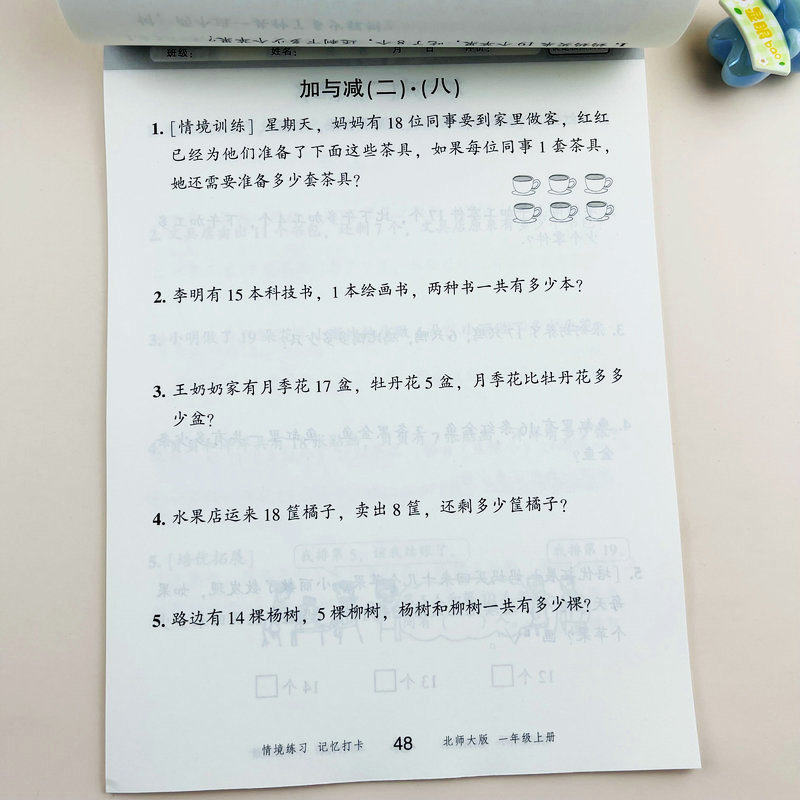 班级： 姓名： 月 日
加与减(二)·(八)
1. [情境训练] 星期天，妈妈有 18 位同事要到家里做客，红红
已经为他们准备了下面这些茶具，如果每位同事 1 套茶具，
她还需要准备多少套茶具？
2. 李明有 15 本科技书，1 本绘画书，两种书一共有多少本？
3. 王奶奶家有月季花 17 盆，牡丹花 5 盆，月季花比牡丹花多多
少盆？
4. 水果店运来 18 筐橘子，卖出 8 筐，还剩多少筐橘子？
5. 路边有 14 棵杨树，5 棵柳树，杨树和柳树一共有多少棵？
情境练习 记忆打卡 48 北师大版 一年级上册